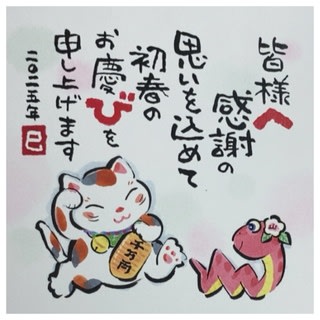 皆様へ
感謝の
思いを込めて
初春の
お慶びを
申し上げます
二〇二五年 巳
千万両